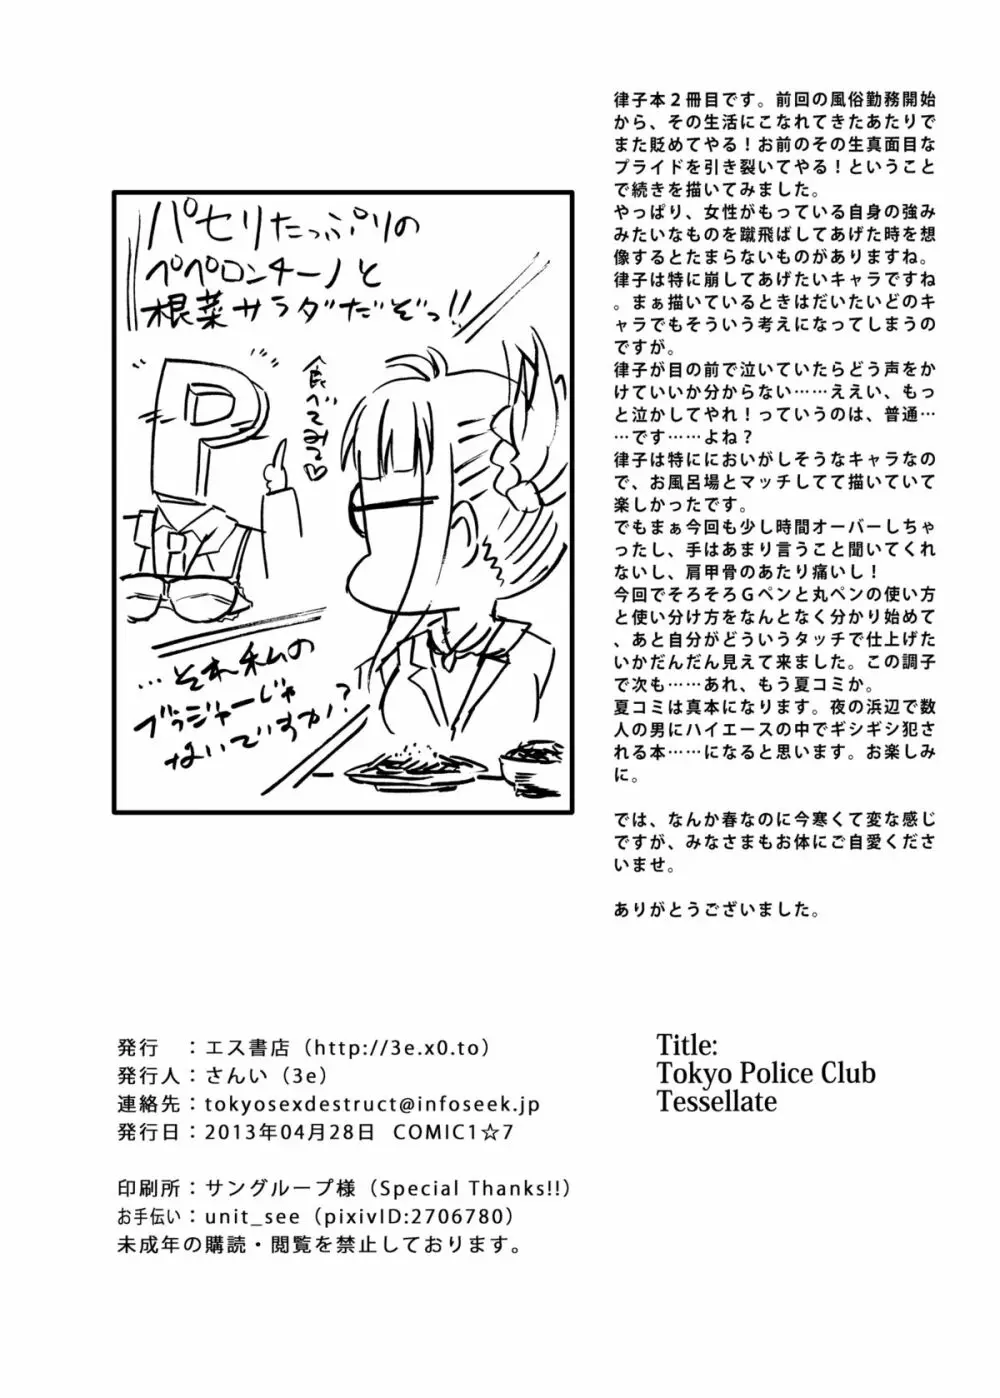 律子本２冊目です。前回の風俗勤務開始
から、その生活にこなれてきたあたりで
また貶めてやる！お前のその生真面目な
プライドを引き裂いてやる！ということ
で続きを描いてみました。
やっぱり、女性がもっている自身の強み
みたいなものを蹴飛ばしてあげた時を想
像するとたまらないものがありますね。
律子は特に崩してあげたいキャラですね
。まぁ描いているときはだいたいどのキ
ャラでもそういう考えになってしまうの
ですが。
律子が目の前で泣いていたらどう声をか
けていいか分からない……ええい、もっ
と泣かしてやれ！っていうのは、普通…
…です……よね？
律子は特ににおいがしそうなキャラなの
で、お風呂場とマッチしてて描いていて
楽しかったです。
でもまぁ今回も少し時間オーバーしちゃ
ったし、手はあまり言うこと聞いてくれ
ないし、肩甲骨のあたり痛いし！
今回でそろそろＧペンと丸ペンの使い方
と使い分け方をなんとなく分かり始めて
、あと自分がどういうタッチで仕上げた
いかだんだん見えて来ました。この調子
で次も……あれ、もう夏コミか。
夏コミは真本になります。夜の浜辺で数
人の男にハイエースの中でギシギシ犯さ
れる本……になると思います。お楽しみ
に。
では、なんか春なのに今寒くて変な感じ
ですが、みなさまもお体にご自愛くださ
いませ。
ありがとうございました。
パセリたっぷりの
ペペロンチーノと
根菜サラダだぞっ!!
食べてみる♡
P
R
…それ私の
ブラジャーじゃ
ないですか!?
発行　：エス書店（http://3e.x0.to）
発行人：さんい（3e）
連絡先：tokyosexdestruct@infoseek.jp
発行日：2013年04月28日　COMIC1☆7
印刷所：サングループ様（Special Thanks!!）
お手伝い：unit_see（pixivID:2706780）
未成年の購読・閲覧を禁止しております。
Title:
Tokyo Police Club
Tessellate